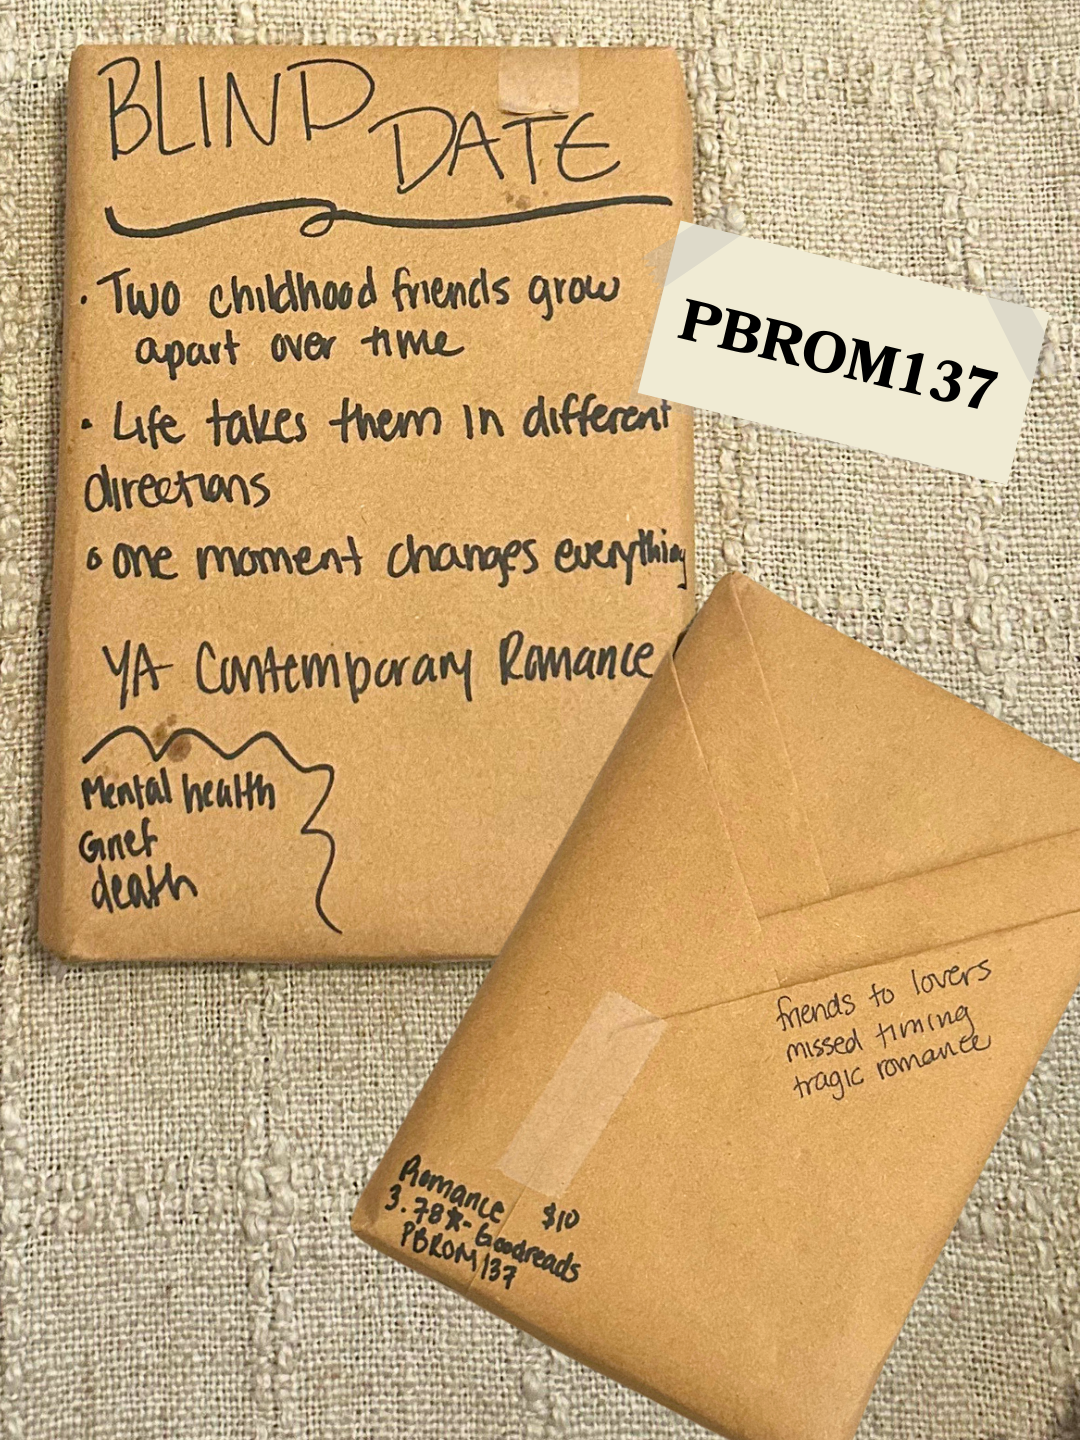 BLIND
DATE
· Two childhood friends grow
apart over time
· Life takes them in different
directions
· one moment changes everything
YA Contemporary Romance
Mental health
Grief
death
PBROM137
friends to lovers
missed timing
tragic romance
Romance $10
3.78★- Goodreads
PBROM137